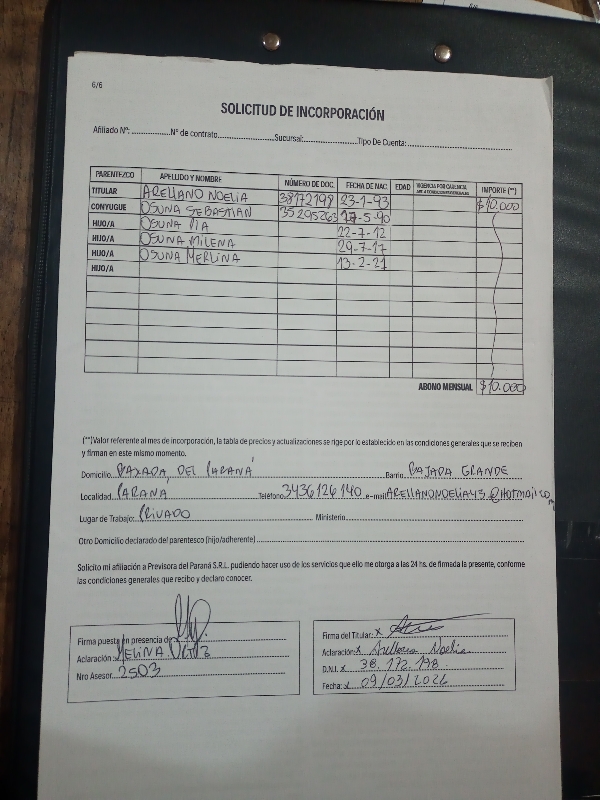 6/6
SOLICITUD DE INCORPORACIÓN
Afiliado Nº: Nº de contrato Sucursal: Tipo De Cuenta:
PARENTEZCO APELLIDO Y NOMBRE NÚMERO DE DOC. FECHA DE NAC. EDAD VIGENCIA POR CARENCIA IMPORTE (**)
TITULAR ARELLANO NOELIA 38172198 23-1-93 $10.000
CONYUGUE OSUNA SEBASTIAN 35295263 17-5-90
HIJO/A OSUNA PIA 22-7-12
HIJO/A OSUNA MILENA 29-7-17
HIJO/A OSUNA MERLINA 13-2-21
HIJO/A
ABONO MENSUAL $10.000
(**)Valor referente al mes de incorporación, la tabla de precios y actualizaciones se rige por lo establecido en las condiciones generales que se reciben
y firman en este mismo momento.
Domicilio BAXADA DEL PARANÁ Barrio BAJADA GRANDE
Localidad PARANA Teléfono 3436126140 e-mail ARELLANONOELIA45@HOTMAIL.COM
Lugar de Trabajo: PRIVADO Ministerio
Otro Domicilio declarado del parentesco (hijo/adherente)
Solicito mi afiliación a Previsora del Paraná S.R.L. pudiendo hacer uso de los servicios que ello me otorga a las 24 hs. de firmada la presente, conforme
las condiciones generales que recibo y declaro conocer.
Firma puesta en presencia de
Aclaración: MELINA ORTIZ
Nro Asesor 2503
Firma del Titular: x
Aclaración x Arellano Noelia
D.N.I. x 38.172.198
Fecha: x 09/03/2026